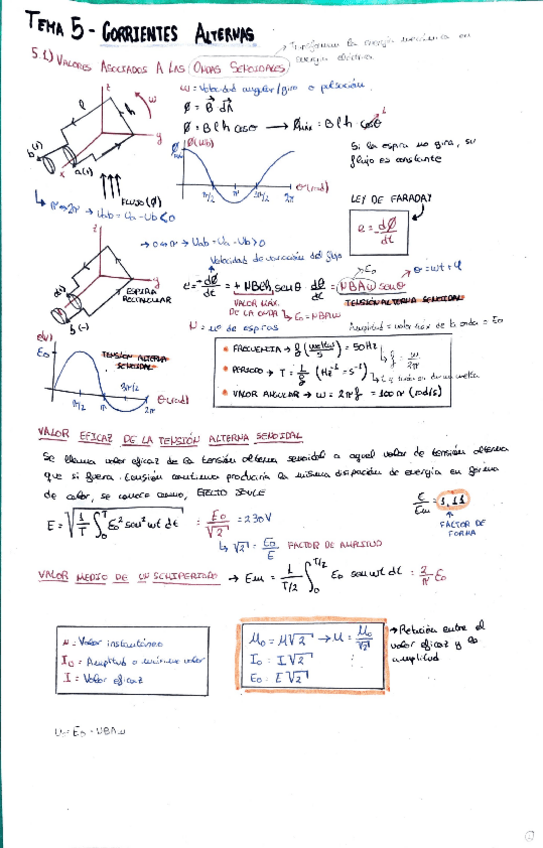 TEMA 5 - CORRIENTES ALTERNAS
Transforman la energía mecánica en
energía eléctrica
5.1) VALORES ASOCIADOS A LAS ONDAS SENOIDALES
ω = velocidad angular/giro o pulsación
z
l
h
ω
y
x
b(-)
a(+)
Ø = B dA
Ø = B l h cosθ → Ømáx = B l h cosθ
Si la espira no gira, su
flujo es constante
Ø(Wb)
π/2
π
3π/2
2π
θ(rad)
FLUJO (Ø)
π → 2π → Uab = Ua - Ub < 0
LEY DE FARADAY
e = -dØ/dt
0 → π → Uab = Ua - Ub > 0
Velocidad de variación del flujo
z
y
ESPIRA
RECTANGULAR
b(-)
e = -dØ/dt = + NBlh senθ · dθ/dt = NBAω senθ
E₀
θ = ωt + φ
VALOR MÁX.
DE LA ONDA
E₀ = NBAω
TENSIÓN ALTERNA SENOIDAL
N = nº de espiras
Amplitud = valor máx de la onda = E₀
e(v)
E₀
TENSIÓN ALTERNA
SENOIDAL
π/2
π
3π/2
2π
θ(rad)
• FRECUENCIA → f (vueltas/s) = 50Hz
f = ω/2π
• PERIODO → T = 1/f (Hz⁻¹ = s⁻¹)
• VALOR ANGULAR → ω = 2πf = 100π (rad/s)
VALOR EFICAZ DE LA TENSIÓN ALTERNA SENOIDAL
Se llama valor eficaz de la tensión alterna senoidal a aquel valor de tensión alterna
que si fuera tensión continua produciría la misma disipación de energía en forma
de calor, se conoce como, EFECTO JOULE
E = √(1/T ∫₀ᵀ E₀² sen² ωt dt) = E₀/√2 = 230V
E/Em = 1,11
FACTOR DE
FORMA
√2 = E₀/E FACTOR DE AMPLITUD
VALOR MEDIO DE UN SEMIPERIODO → Em = 1/(T/2) ∫₀^(T/2) E₀ sen ωt dt = 2/π E₀
u = Valor instantáneo
I₀ = Amplitud o máximo valor
I = Valor eficaz
M₀ = M√2 → M = M₀/√2
I₀ = I√2
E₀ = E√2
→ Relación entre el
valor eficaz y la
amplitud
E₀ = NBAω